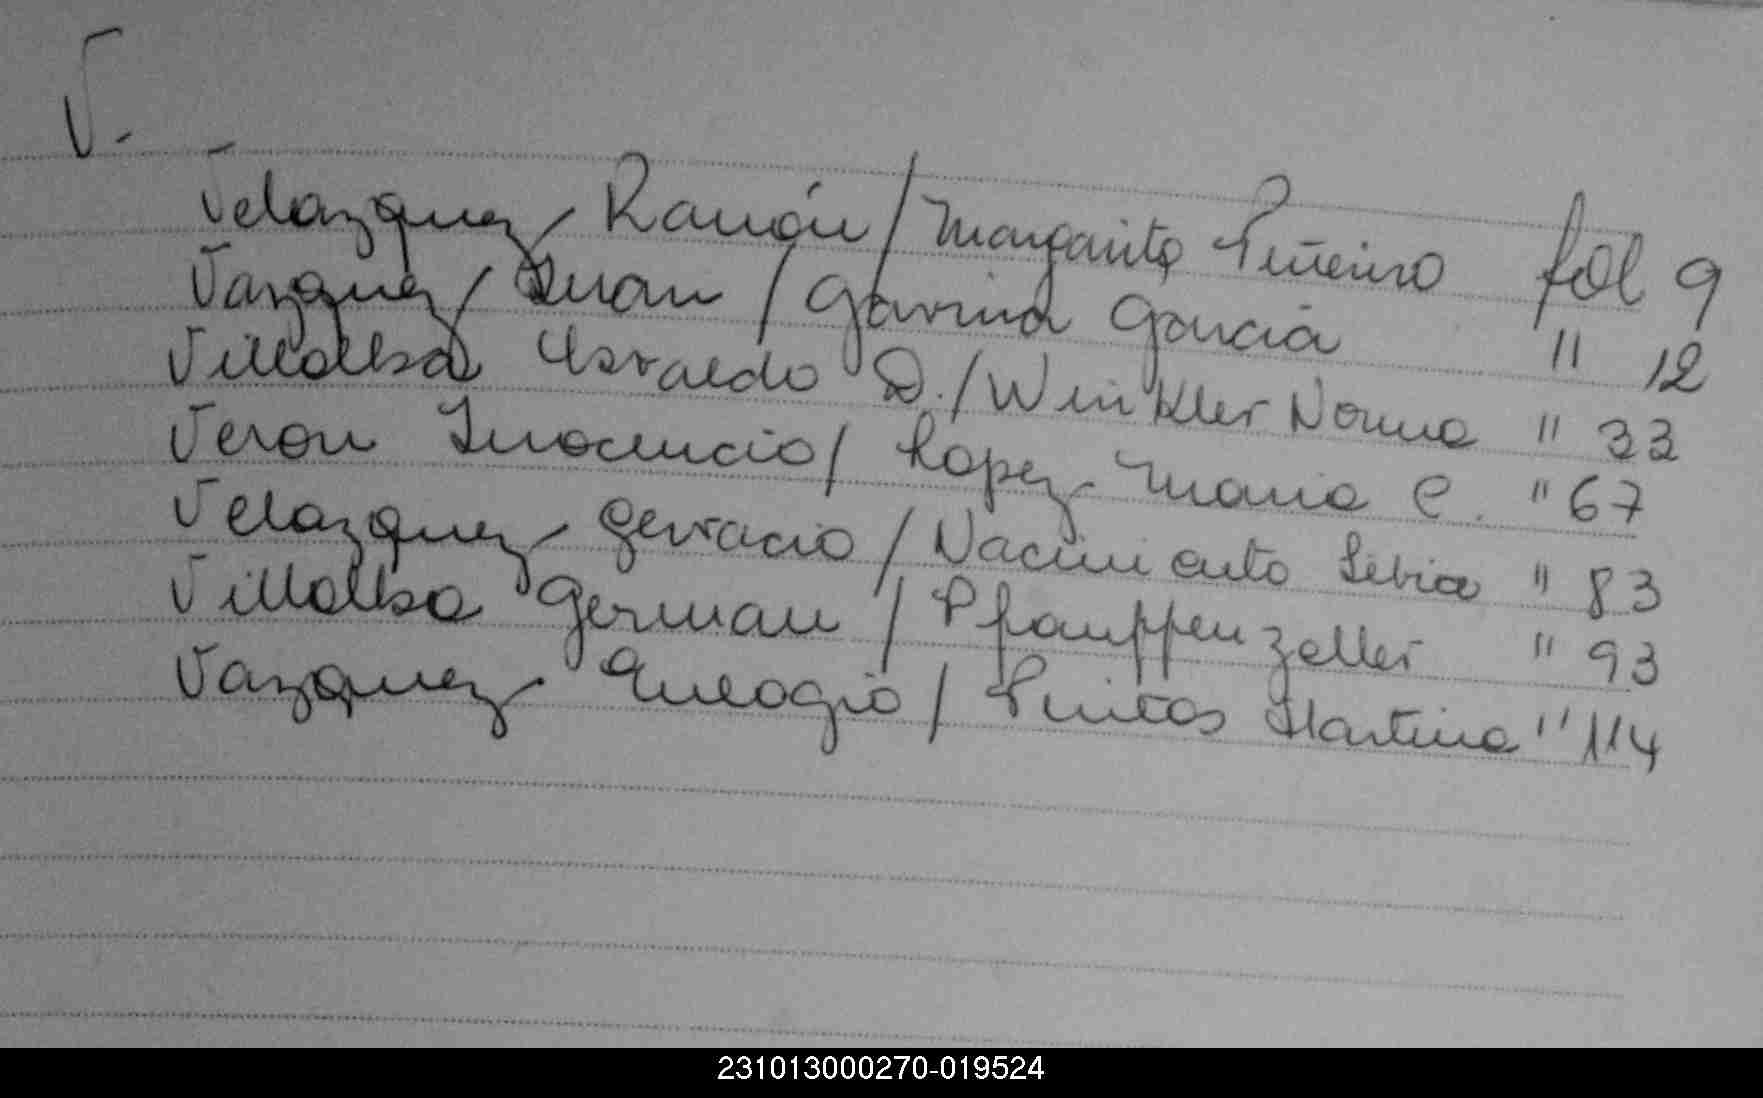 V.
Velazquez Ramón / Margarita Piñeiro fol 9
Vazquez Juan / Gavina Garcia " 12
Villalba Osvaldo D. / Winkler Norma " 33
Veron Inocencio / Lopez Maria C. " 67
Velazquez Gervacio / Nacimiento Libia " 83
Villalba German / Pfampfenzeller " 93
Vazquez Eulogio / Pintos Martina " 114
231013000270-019524